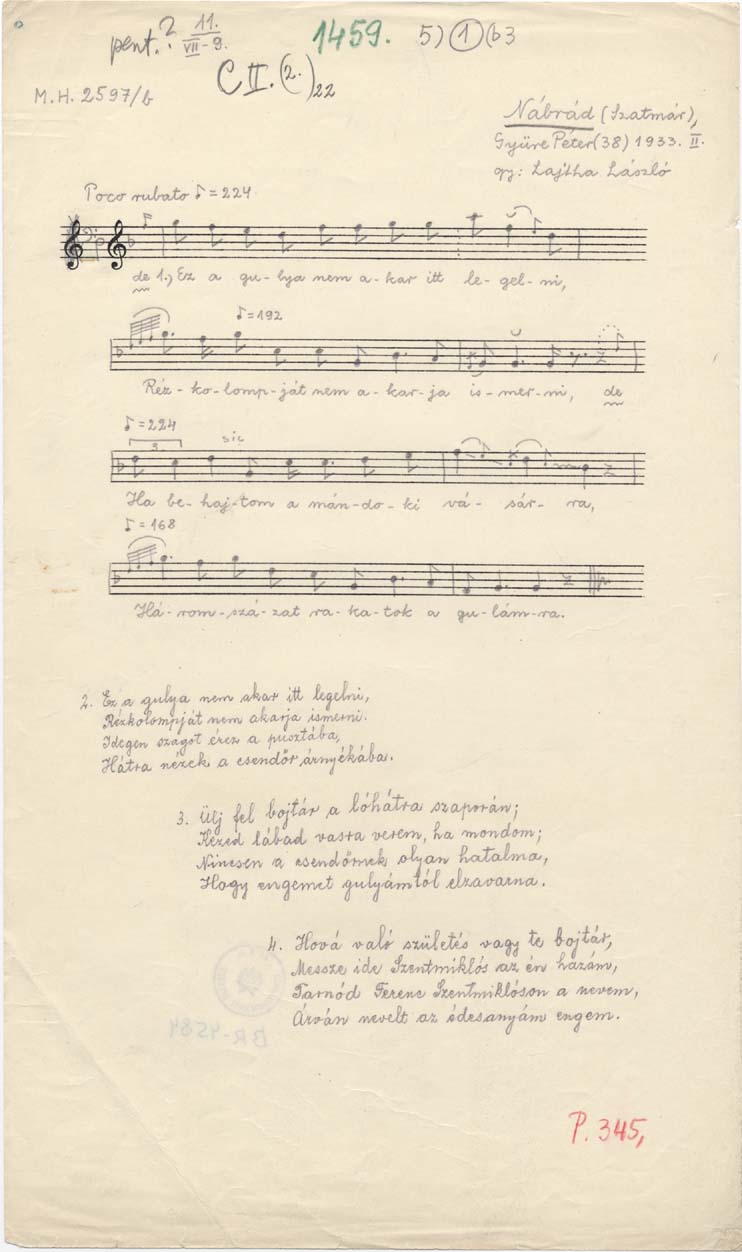 pent.? 11.
VII-9.
1459. 5) 1 (b3
C II. (2.)22
M.H. 2597/b
Nábrád (Szatmár),
Gyüre Péter (38) 1933. II.
gy: Lajtha László
Poco rubato ♪ = 224
de 1.) Ez a gu-lya nem a-kar itt le-gel-ni,
♪ = 192
Réz-ko-lomp-ját nem a-kar-ja is-mer-ni, de
♪ = 224
3 sic
Ha be-haj-tom a mán-do-ki vá-sár-ra,
♪ = 168
Há-rom-szá-zat ra-ka-tok a gu-lám-ra.
2. Ez a gulya nem akar itt legelni,
Rézkolompját nem akarja ismerni.
Idegen szagot érez a pusztába,
Hátra nézek a csendőr árnyékába.
3. Ülj fel bojtár a lóhátra szaporán;
Kezed lábad vasra verem, ha mondom;
Nincsen a csendőrnek olyan hatalma,
Hogy engemet gulyámtól elzavarna.
4. Hová való születés vagy te bojtár,
Messze ide Szentmiklós az én hazám,
Tarnód Ferenc Szentmiklóson a nevem,
Árván nevelt az édesanyám engem.
BR-4584
P. 345,